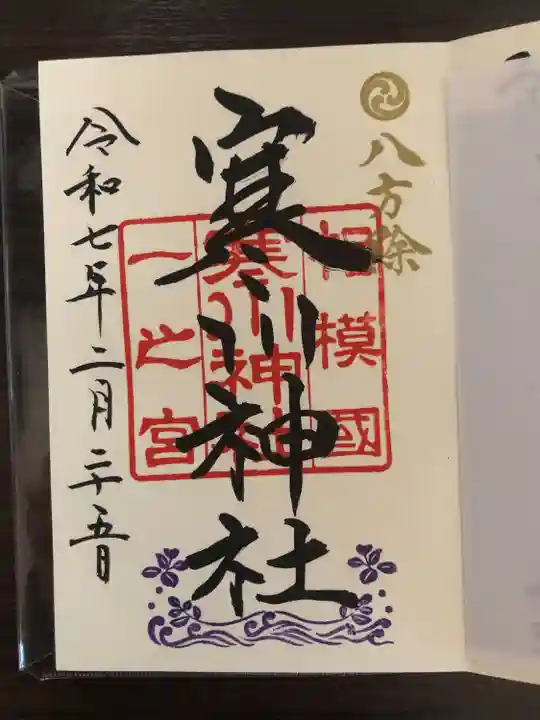 八方除
寒川神社
相模國
寒川神社
一之宮
令和七年二月二十五日